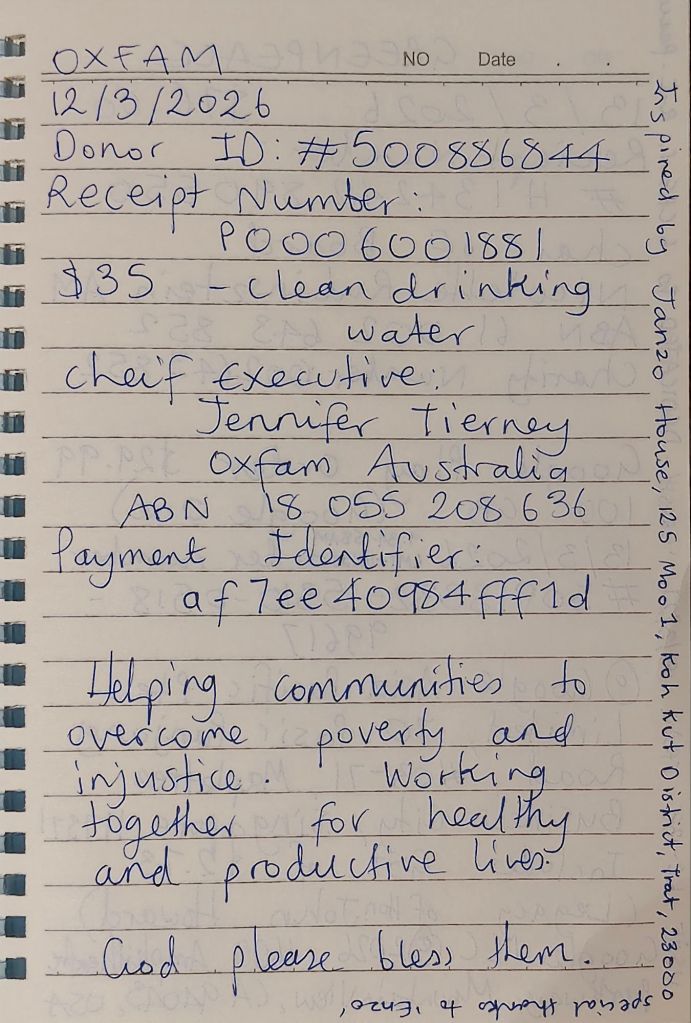 OXFAM NO Date . .
12/3/2026
Donor ID: #500886844
Receipt Number:
P0006001881
$35 - clean drinking
water
Cheif Executive:
Jennifer Tierney
Oxfam Australia
ABN 18 055 208 636
Payment Identifier:
af7ee40984fff1d
Helping communities to
overcome poverty and
injustice. Working
together for healthy
and productive lives.
God please bless them.
Inspired by Janzo House, 125 Moo 1, Koh Kut District, Trat, 23000
special thanks to 'Enzo'